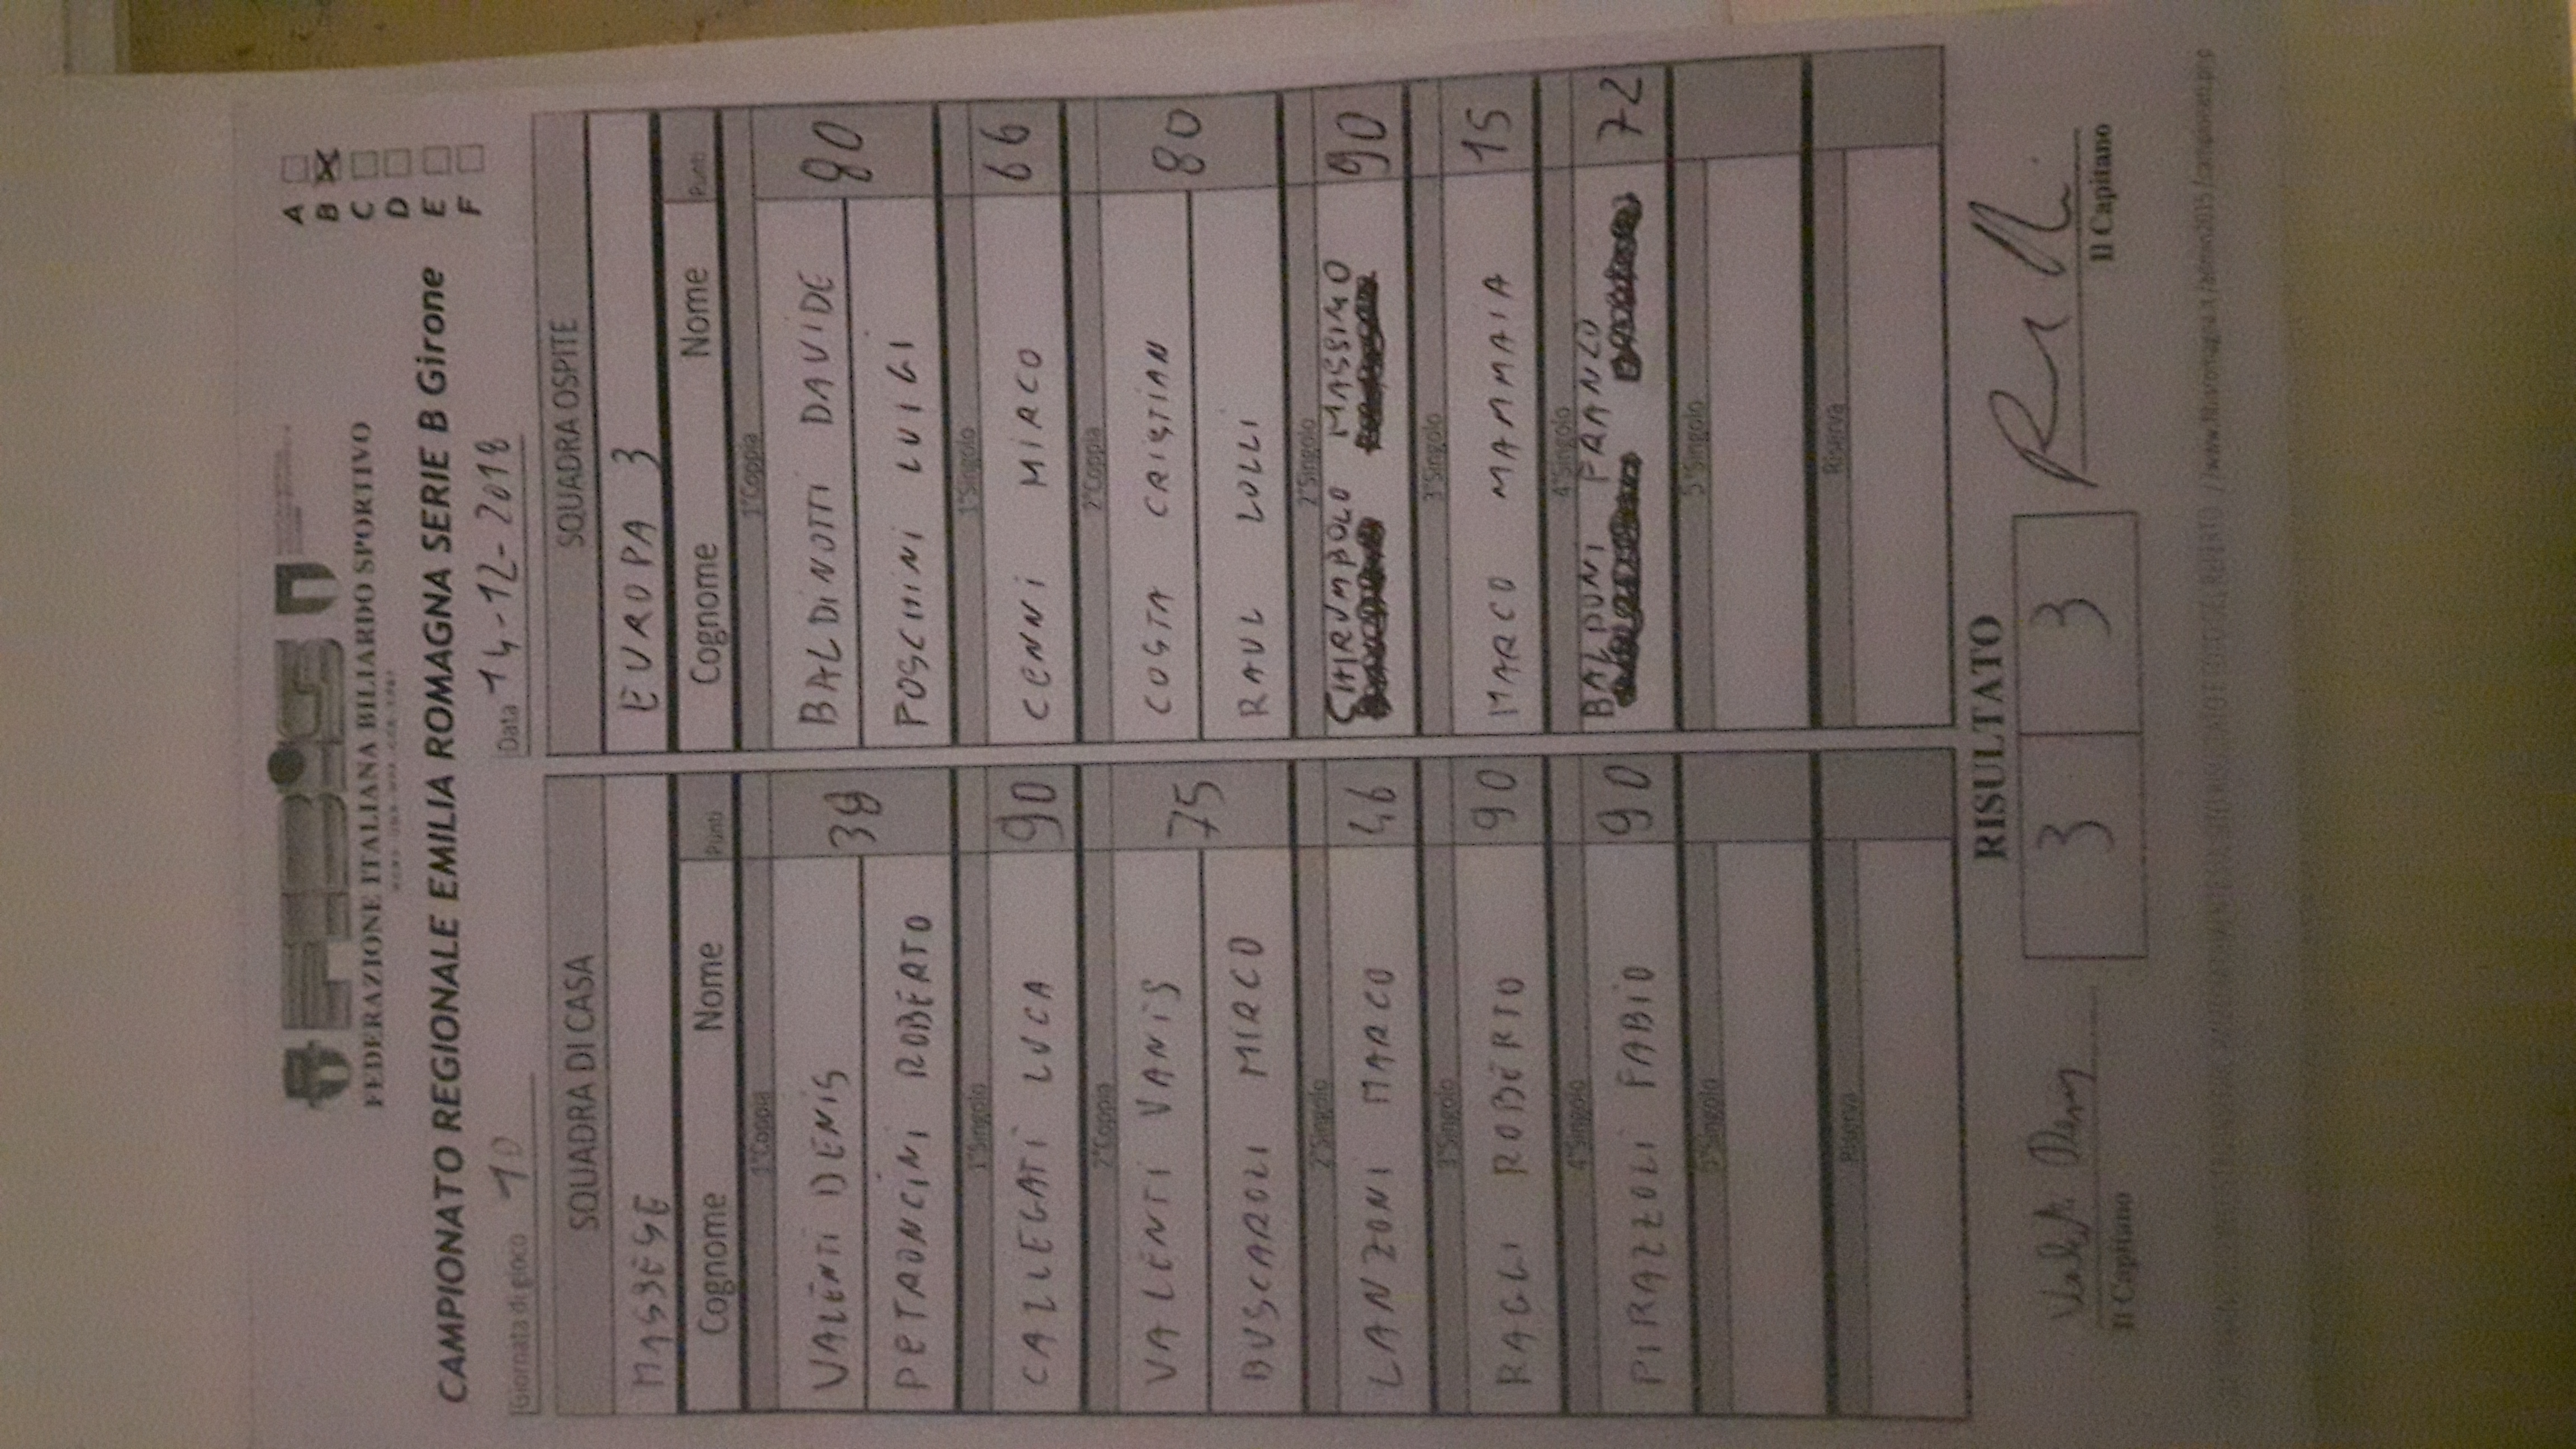 FEDERAZIONE ITALIANA BILIARDO SPORTIVO
CAMPIONATO REGIONALE EMILIA ROMAGNA SERIE B Girone
A
B X
C
D
E
F
Giornata di gioco 10
Data 14-12-2018
SQUADRA DI CASA SQUADRA OSPITE
MASSESE EUROPA 3
Cognome Nome Punti Cognome Nome Punti
1°Coppia 1°Coppia
VALENTI DENIS 38 BALDINOTTI DAVIDE 80
PETRONCINI ROBERTO POSCHINI LUIGI
1°Singolo 1°Singolo
CALLEGATI LUCA 90 CENNI MIRCO 66
2°Coppia 2°Coppia
VALENTI VANIS 75 COSTA CRISTIAN 80
BUSCAROLI MIRCO RAUL LOLLI
2°Singolo 2°Singolo
LANZONI MARCO 46 CHIRUMBOLO MASSIMO 90
3°Singolo 3°Singolo
RAGLI ROBERTO 90 MARCO MAMMAIA 15
4°Singolo 4°Singolo
PIRAZZOLI FABIO 90 BALDUNI FRANCO 72
5°Singolo 5°Singolo
Riserva Riserva
RISULTATO
3 3
Il Capitano Il Capitano